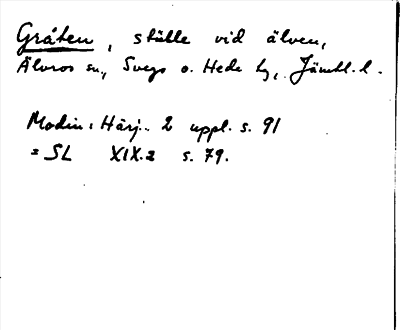 Gråten, ställe vid älven,
Älvros sn, Svegs o. Hede hg, Jämtl. l.
Modin: Härj. 2 uppl. s. 91
= SL XIX.2 s. 79.